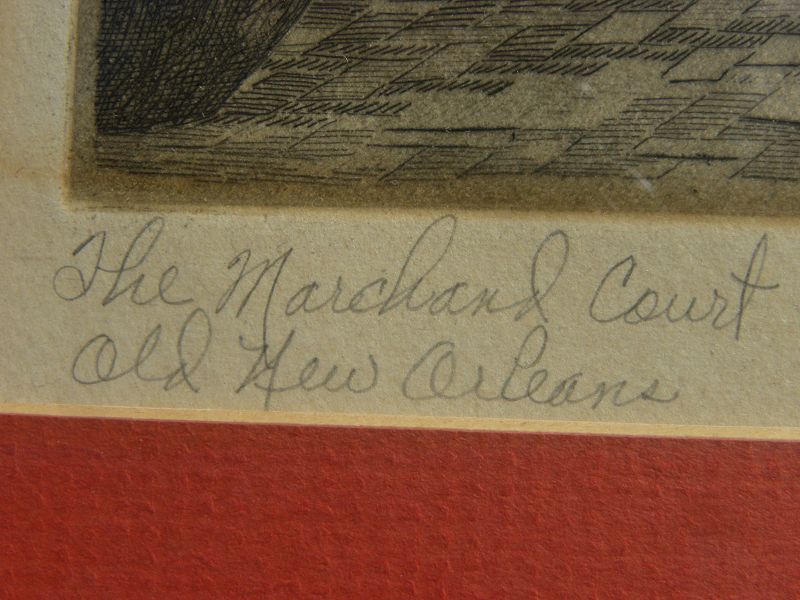 The Marchand Court
Old New Orleans